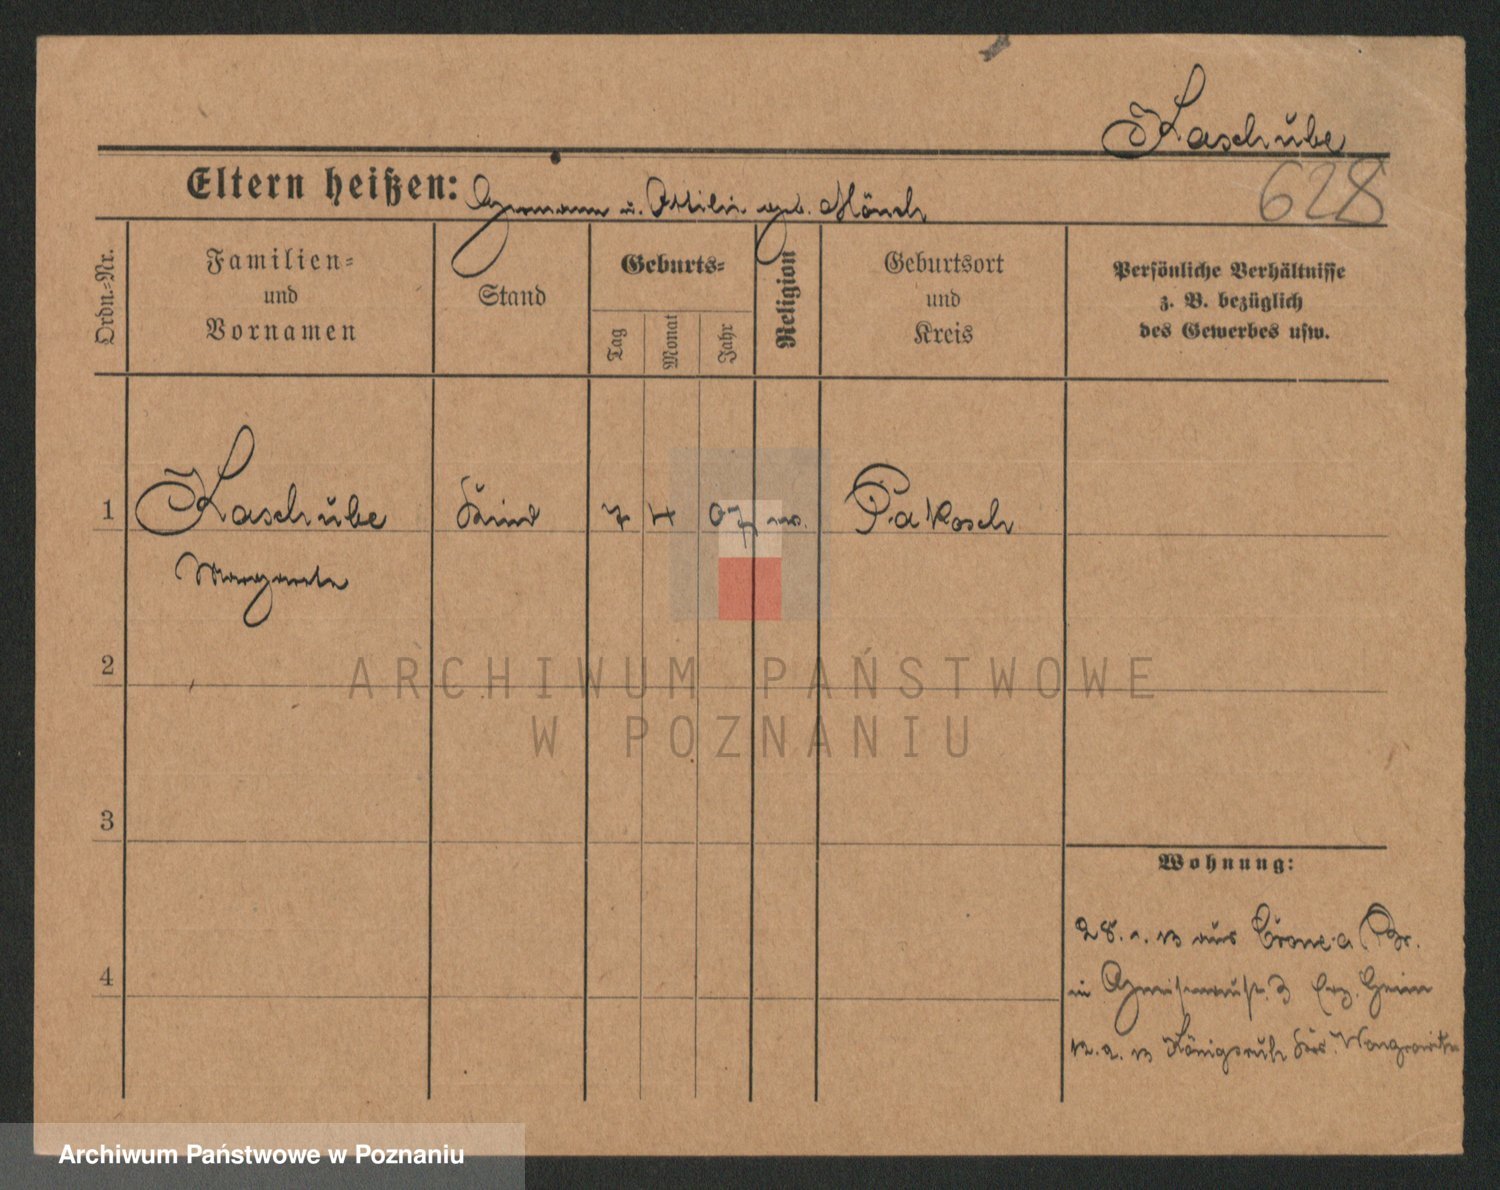 Kaschube
Eltern heißen: Hermann u. Ottilie geb. Mönch
628
Ordn.-Nr.
Familien-
und
Vornamen
Stand
Geburts-
Tag
Monat
Jahr
Religion
Geburtsort
und
Kreis
Persönliche Verhältnisse
z. B. bezüglich
des Gewerbes usw.
1 Kaschube Kind 7 4 07 ev. Pakosch
Margarete
2
ARCHIWUM PAŃSTWOWE
W POZNANIU
3
Wohnung:
28. 1. 13 aus Crone a Br.
4
in Gneisenaustr. 3 Erz. Heim
12. 2. 13 Königsruh Krs. Wongrowitz
Archiwum Państwowe w Poznaniu